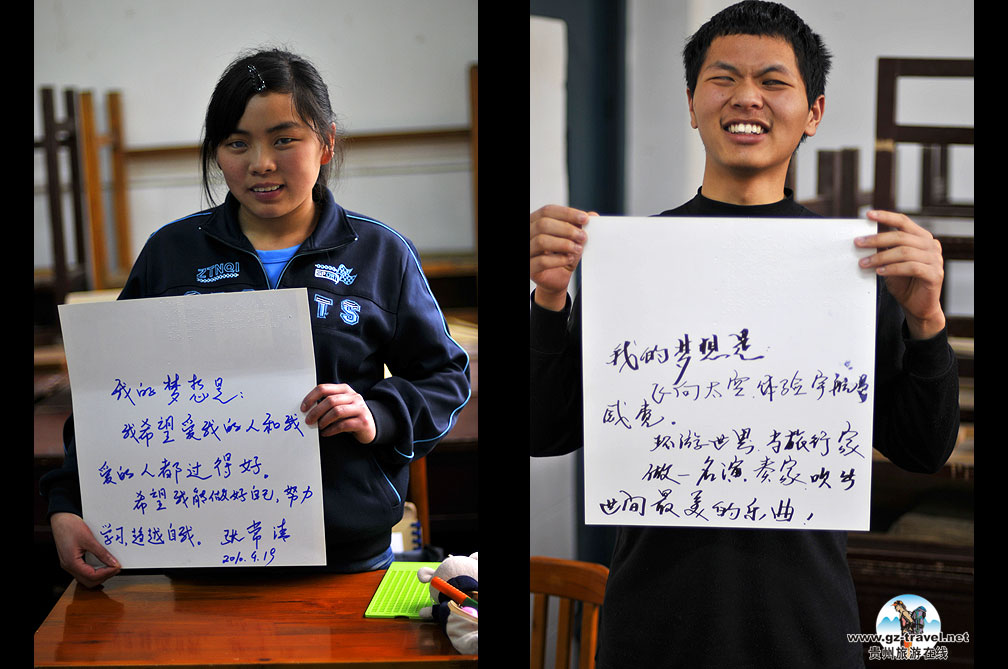 ZTNQI
SPORTS
TS
我的梦想是:
我希望爱我的人和我
爱的人都过得好。
希望我能做好自己,努力
学习,超越自我。 张常清
2010.4.19
我的梦想是
飞向太空,体验宇航员
感觉。
环游世界,当旅行家
做一名演奏家,吹出
世间最美的乐曲!
www.gz-travel.net
贵州旅游在线